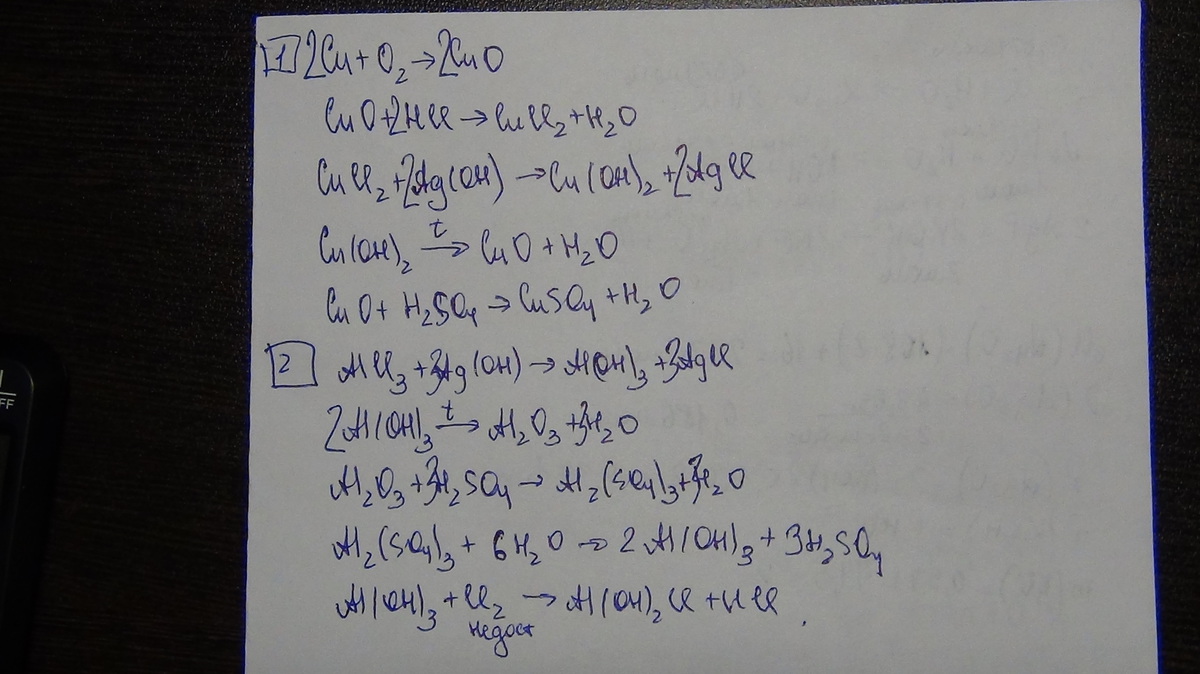 1 2Cu + O2 → 2CuO
CuO + 2HCl → CuCl2 + H2O
CuCl2 + 2Ag(OH) → Cu(OH)2 + 2AgCl
Cu(OH)2 t→ CuO + H2O
CuO + H2SO4 → CuSO4 + H2O
2 AlCl3 + 3Ag(OH) → Al(OH)3 + 3AgCl
2Al(OH)3 t→ Al2O3 + 3H2O
Al2O3 + 3H2SO4 → Al2(SO4)3 + 3H2O
Al2(SO4)3 + 6H2O → 2Al(OH)3 + 3H2SO4
Al(OH)3 + Cl2 → Al(OH)2Cl + HCl
недост